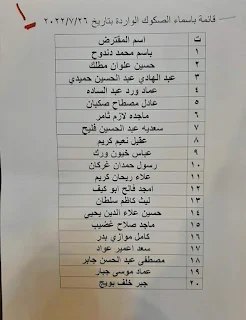 قائمة باسماء الصكوك الواردة بتاريخ ٢٠٢٢/٧/٢٦
ت اسم المقترض
١ باسم محمد دندوح
٢ حسين علوان مطلك
٣ عبد الهادي عبد الحسين حميدي
٤ عماد ورد عبد الساده
٥ عادل مصطاح صكبان
٦ ماجده لازم ثامر
٧ سعديه عبد الحسين فليح
٨ عقيل نعيم كريم
٩ عباس خيون ورك
١٠ رسول حمدان غركان
١١ علاء ريحان كريم
١٢ امجد فالح ابو كيف
١٣ ليث كاظم سلطان
١٤ حسين علاء الدين يحيى
١٥ ماجد صلاح غضيب
١٦ كامل موازي بدر
١٧ سعد اعمير عواد
١٨ مصطفى عبد الحسن جابر
١٩ عماد موسى جبار
٢٠ جبر خلف بويج